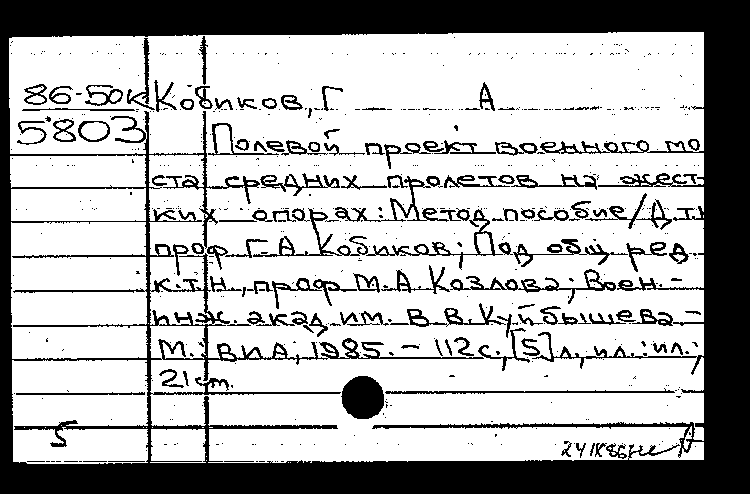 86-50к Кобиков, Г А
5803
Полевой проект военного мо
ста средних пролетов на жест-
ких опорах: Метод. пособие/Д.т.н
проф Г.А. Кобиков; Под общ ред
к.т.н., проф М.А. Козлова; Воен.-
инж. акад им. В.В. Куйбышева.-
М.: ВИА, 1985. - 112с., [5] л., ил.: ил.;
21 cm.
5